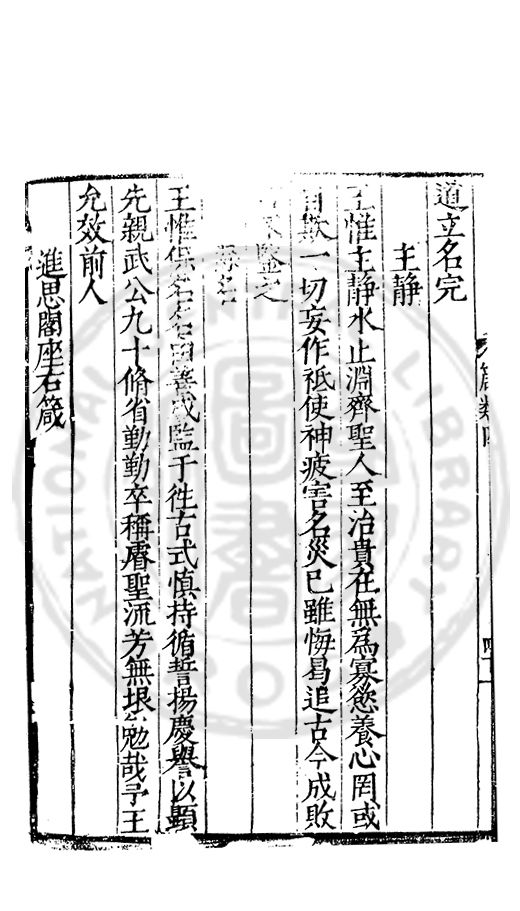 道立名完
主靜
王惟主靜水止淵齊聖人至治貴在無爲寡慾養心罔或
自欺一切妄作祗使神疲害名災己雖悔曷追古今成敗
鑒之
名
王惟保名名由善成監于徃古式慎持循誓揚慶譽以顯
先親武公九十脩省勤勤卒稱睿聖流芳無垠勉哉予王
允效前人
進思閣座右箴
箴類
NATIONAL LIBRARY
圖書